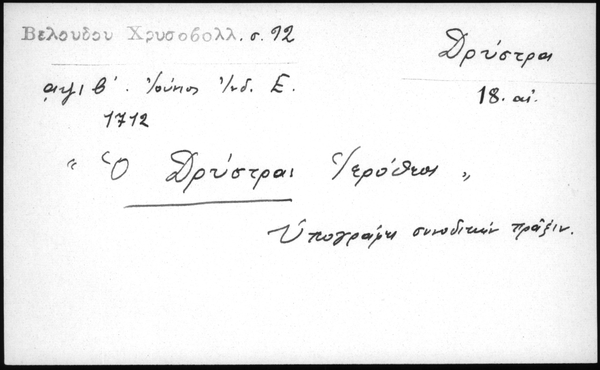 Βελουδου Χρυσοβολλ. σ. 92
Δρύστραι
͵αψιβʹ. Ἰούνιος Ἰνδ. Ε.
18. αἰ.
1712
" Ὁ Δρύστραι Ἱερόθεος "
Ὑπογράφει συνοδικὴν πρᾶξιν.